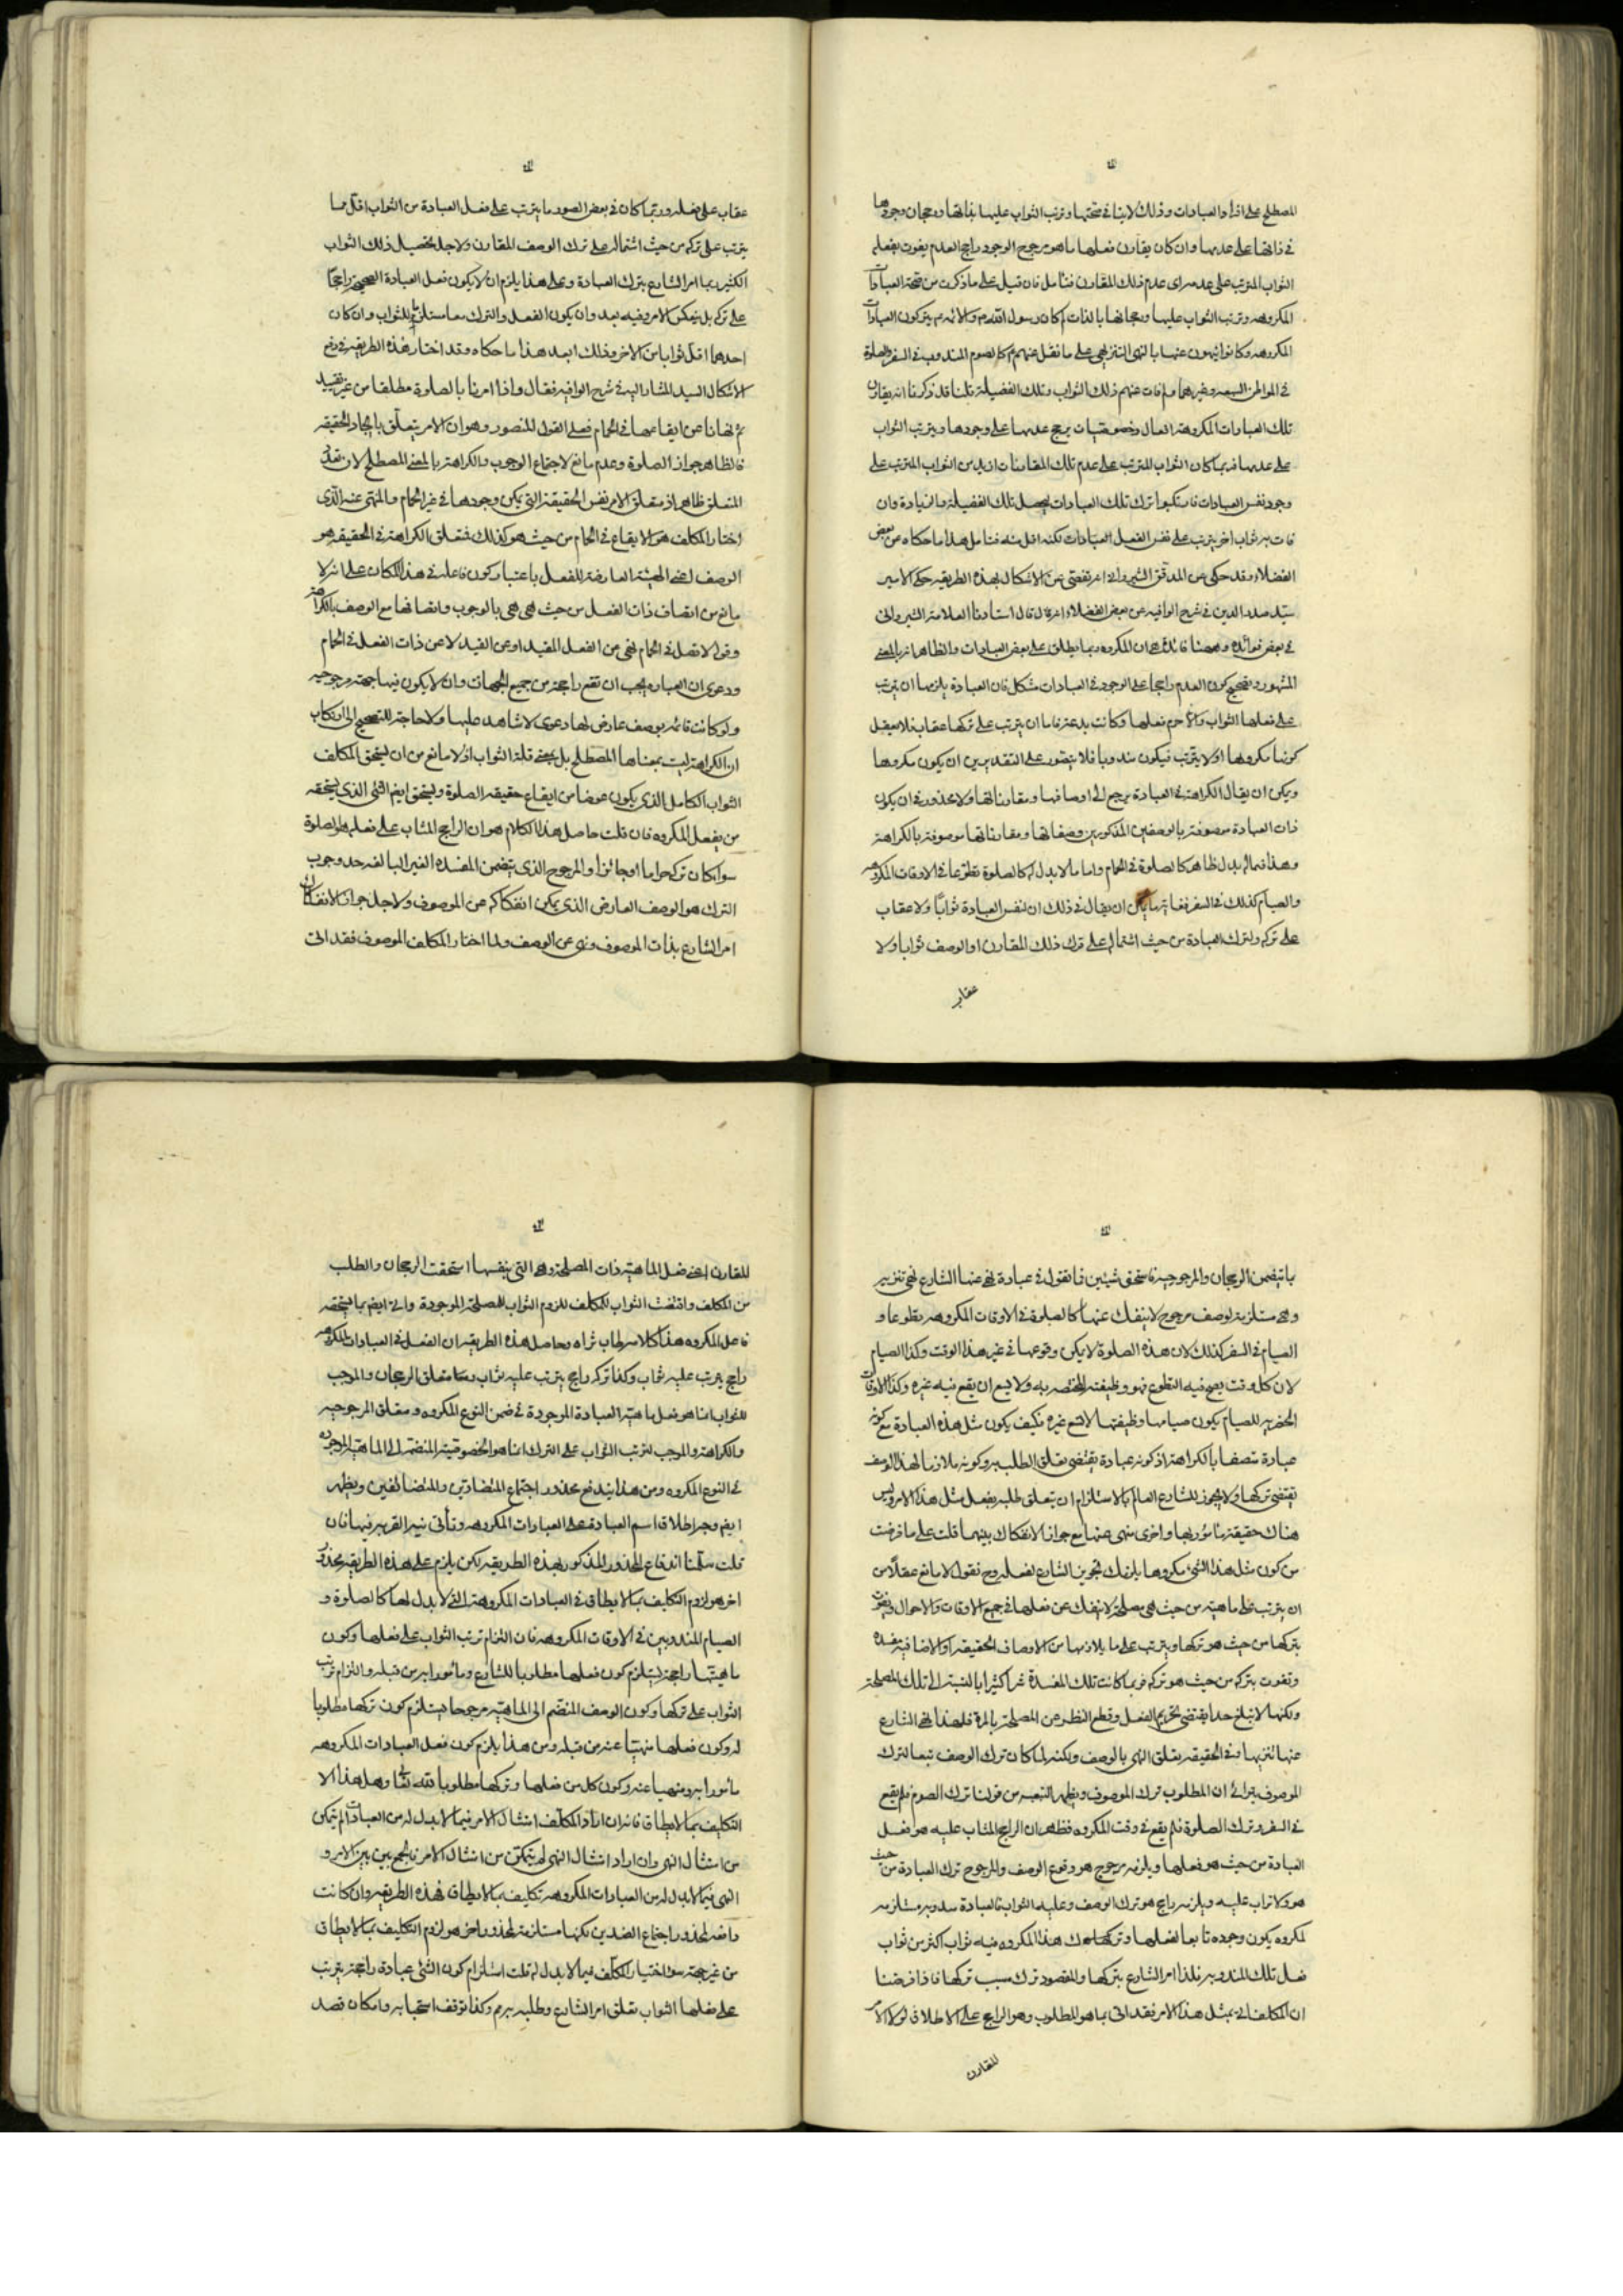 المصطلح على افراد العبادات وذلك لا ينافى صحتها وترتب الثواب عليها بذاتها ورجحان وجودها
فى ذاتها على عدمها وان كان يقارن فعلها ما هو مرجوح الوجود راجح العدم يفوت بفعله
الثواب المترتب على عدمه اى عدم ذلك المقارن فتامل فان قيل على ما ذكرت من صحة العبادات
المكروهه وترتب الثواب عليها ورجحانها بالذات كان رسول الله ص والائمه ع يتركون العبادات
المكروهه وكانوا ينهون عنها بالنهى التنزيهى على ما نقل عنهم ع كالصوم المندوب فى السفر والصلوة
فى المواطن السبعه وغيرهما وفات عنهم ذلك الثواب وتلك الفضيلة قلنا قد ذكرنا انه يقارن
تلك العبادات المكروهة افعال وخصوصيات يرجح عدمها على وجودها ويترتب الثواب
على عدمها فربما كان الثواب المترتب على عدم تلك المقارنات ازيد من الثواب المترتب على
وجود نفس العبادات فارتكبوا ترك تلك العبادات ليحصل تلك الفضيلة والزيادة وان
فات به ثواب اخر يترتب على نفس الفعل العبادات لكنه اقل منه فتامل هذا ما حكاه عن بعض
الفضلاء وقد حكى عن المدقق الشيروانى انه تفصى عن الاشكال بهذه الطريقه حكى الامير
سيد صدر الدين فى شرح الوافيه عن بعض الفضلاء انه قال قال استادنا العلامة الشيروانى
فى بعض فوائده وههنا فائدة هى ان المكروه ربما يطلق على بعض العبادات والظاهر انه بالمعنى
المشهور وتصحيح كون العدم راجحا على الوجود فى العبادات مشكل فان العبادة يلزمها ان يترتب
على فعلها الثواب والا حرم فعلها وكانت بدعة فاما ان يترتب على تركها عقاب فلا يعقل
كونها مكروها او لا يترتب فيكون مندوبا فلا يتصور على التقديرين ان يكون مكروها
ويمكن ان يقال الكراهة فى العبادة يرجع الى اوصافها ومقارناتها ولا محذور فى ان يكون
ذات العبادة موصوفة بالوصفين المذكورين وصفاتها ومقارناتها موصوفة بالكراهة
وهذا فيما له بدل ظاهر كالصلوة فى الحمام واما ما لا بدل له كالصلوة تطوعا فى الاوقات المكروهه
والصيام كذلك فى السفر فغايتها يمكن ان يقال فى ذلك ان لنفس العبادة ثوابًا ولا عقاب
على تركه ولترك العبادة من حيث اشتماله على ترك ذلك المقارن او الوصف ثوابا ولا
عقاب
عقاب على فعله وربما كان فى بعض الصور ما يترتب على فعل العبادة من الثواب اقل مما
يترتب على تركه من حيث اشتماله على ترك الوصف المقارن ولاجل تحصيل ذلك الثواب
الكثير ربما امر الشارع بترك العبادة وعلى هذا يلزم ان لا يكون فعل العبادة الصحيحة راجحًا
على تركه بل ينعكس الامر وفيه بعد وان يكون الفعل والترك معا مستلزم للثواب وان كان
احدهما اقل ثوابا من الاخر وذلك ابعد هذا ما حكاه وقد اختار هذه الطريقة فى دفع
الاشكال السيد المشار اليه فى شرح الوافيه فقال واذا امرنا بالصلوة مطلقا من غير تقييد
ثم نهانا عن ايقاعها فى الحمام فعلى القول المنصور وهو ان الامر يتعلق بايجاد الحقيقه
فالظاهر جواز الصلوة وعدم مانع لاجتماع الوجوب والكراهة بالمعنى المصطلح لان تعدد
المتعلق ظاهر اذ متعلق الامر نفس الحقيقة التى يمكن وجودها فى غير الحمام والمنهى عنه الذى
اختار المكلف هو الايقاع فى الحمام من حيث هو كذلك فمتعلق الكراهة فى الحقيقه هو
الوصف اعنى الهيئة العارضة للفعل باعتبار كون فاعله فى هذا المكان على انه لا
مانع من اتصاف ذات الفعل من حيث هى هى بالوجوب واتصافها مع الوصف بالكراهة
وقوله لا تصل فى الحمام نهى من الفعل المقيد او عن القيد لا عن ذات الفعل فى الحمام
ودعوى ان العباده يجب ان تقع راجحة من جميع الجهات وان لا يكون فيها جهة مرجوحيه
ولو كانت قائمه بوصف عارض لها دعوى لا شاهد عليها ولا حاجة للتصحيح الى ارتكاب
ان الكراهة ليست بمعناها المصطلح بل بمعنى قلة الثواب اذ لا مانع من ان يستحق المكلف
الثواب الكامل الذى يكون عوضا من ايقاع حقيقه الصلوة ويستحق ايضا الشئ الذى يستحقه
من يفعل المكروه فان قلت حاصل هذا الكلام هو ان الراجح المثاب على فعله هو الصلوة
سواء كان تركه حراما او جائزا والمرجوح الذى يتضمن المفسده الغير البالغه حد وجوب
الترك هو الوصف العارض الذى يمكن انفكاكه عن الموصوف ولاجل جواز الانفكاك
امر الشارع بذات الموصوف ونهى عن الوصف ولما اختار المكلف الموصوف فقد اتى
بما يتضمن الرجحان والمرجوحية فاستحق شيئين فما تقول فى عبادة نهى عنها الشارع نهى تنزيه
وهى مستلزمة لوصف مرجوح لا ينفك عنها كالصلوة فى الاوقات المكروهه تطوعا و
الصيام فى السفر كذلك لان هذه الصلوة لا يمكن وقوعها فى غير هذا الوقت وكذا الصيام
لان كل وقت يصح فيه التطوع فهو وظيفته المختصه به ولا يسع ان يقع فيه غيره وكذا الاوقات
الحضريه للصيام يكون صيامها وظيفتها لا تسع غيره فكيف يكون مثل هذه العبادة مع كونه
عبادة متصفا بالكراهة اذ كونه عبادة يقتضى تعلق الطلب به وكونه ملازما لهذا الوصف
يقتضى تركها ولا يجوز للشارع العالم بالاستلزام ان يتعلق طلبه بفعل مثل هذا الامر وليس
هناك حقيقة مامور بها واخرى منهى عنها مع جواز الانفكاك بينهما قلت على ما فرضت
من كون مثل هذا الشئ مكروها يلزمك تجويز الشارع لفعله وح نقول لا مانع عقلًا من
ان يترتب على ماهيته من حيث هى مصلحة لا ينفك عن فعلها فى جميع الاوقات والاحوال ويفوت
بتركها من حيث هو تركها ويترتب على ما يلازمها من الاوصاف الحقيقيه او الاضافيه مفسده
وتفوت بتركه من حيث هو تركه فربما كانت تلك المفسدة شرا كثيرا بالنسبة الى تلك المصلحة
ولكنها لا تبلغ حدا يقتضى تحريم الفعل وقطع النظر عن المصلحة بالمرة فلهذا نهى الشارع
عنها تنزيها وفى الحقيقه يتعلق النهى بالوصف ولكنه لما كان ترك الوصف تبعا لترك
الموصوف يترائى ان المطلوب ترك الموصوف ويظهر التبعيه من قولنا ترك الصوم فلم يقع
فى السفر وترك الصلوة فلم يقع فى وقت المكروه فظهر ان الراجح المثاب عليه هو فعل
العبادة من حيث هو فعلها ويلزمه مرجوح هو وقوع الوصف والمرجوح ترك العبادة من حيث
هو ولا ثواب عليه ويلزمه راجح هو ترك الوصف وعليه الثواب فالعبادة مندوبه مستلزمه
لمكروه يكون وجوده تابعا لفعلها وتركها ترك هذا المكروه فيه ثواب اكثر من ثواب
فعل تلك المندوبه فلذا امر الشارع بتركها والمقصود ترك سبب تركها فاذا فرضنا
ان المكلف اتى بمثل هذا الامر فقد اتى بما هو المطلوب وهو الراجح على الاطلاق لولا الامر
المقارن
المقارن اعنى فعل الماهية ذات المصلحة وهى التى بنفسها استحقت الرجحان والطلب
من المكلف واقتضت الثواب للمكلف للزوم الثواب للمصلحة الموجودة واتى ايضا بما يستحقه
فاعل المكروه هذا كلامه طاب ثراه وحاصل هذه الطريقه ان الفعل فى العبادات المكروهه
راجح يترتب عليه ثواب وكذا تركه راجح يترتب عليه ثواب ومتعلق الرجحان والموجب
للثواب انما هو فعل ماهية العبادة الموجودة فى ضمن النوع المكروه ومتعلق المرجوحيه
والكراهة والموجب لترتب الثواب على الترك انما هو الخصوصية المنضمة الى الماهية الموجوده
فى النوع المكروه ومن هذا يندفع محذور اجتماع المتضادين والمتضائفين ويظهر
ايضا وجه اطلاق اسم العبادة على العبادات المكروهه وتأتى نية القربه فيها فان
قلت سلمنا اندفاع المحذور المذكور بهذه الطريقه لكن يلزم على هذه الطريقه محذور
اخر هو لزوم التكليف بما لا يطاق فى العبادات المكروهة التى لا بدل لها كالصلوة و
الصيام المندوبين فى الاوقات المكروهه فان التزام ترتب الثواب على فعلها وكون
ماهيتها راجحة يستلزم كون فعلها مطلوبا للشارع ومأمورا به من قبله والتزام ترتب
الثواب على تركها وكون الوصف المنضم الى الماهيه مرجوحا يستلزم كون تركها مطلوبا
له وكون فعلها منهيًا عنه من قبله ومن هذا يلزم كون فعل العبادات المكروهه
مأمورا به ومنهيا عنه وكون كل من فعلها وتركها مطلوبا لله تعالى وهل هذا الا
التكليف بما لا يطاق فانه ان اراد المكلف امتثال الامر فيما لا بدل له من العبادات لم يتمكن
من امتثال النهى وان اراد امتثال النهى لم يتمكن من امتثال الامر فالجمع بين الامر و
النهى فيما لا بدل له من العبادات المكروهه تكليف بما لا يطاق فهذه الطريقه وان كانت
دافعه لمحذور اجتماع الضدين لكنها مستلزمة لمحذور اخر هو لزوم التكليف بما لا يطاق
من غير جهة سوء اختيار المكلف فيما لا بدل له قلت استلزام كون الشئ عبادة راجحة يترتب
على فعلها الثواب تعلق امر الشارع وطلبه به مم وكذا توقف استحبابه وامكان قصد